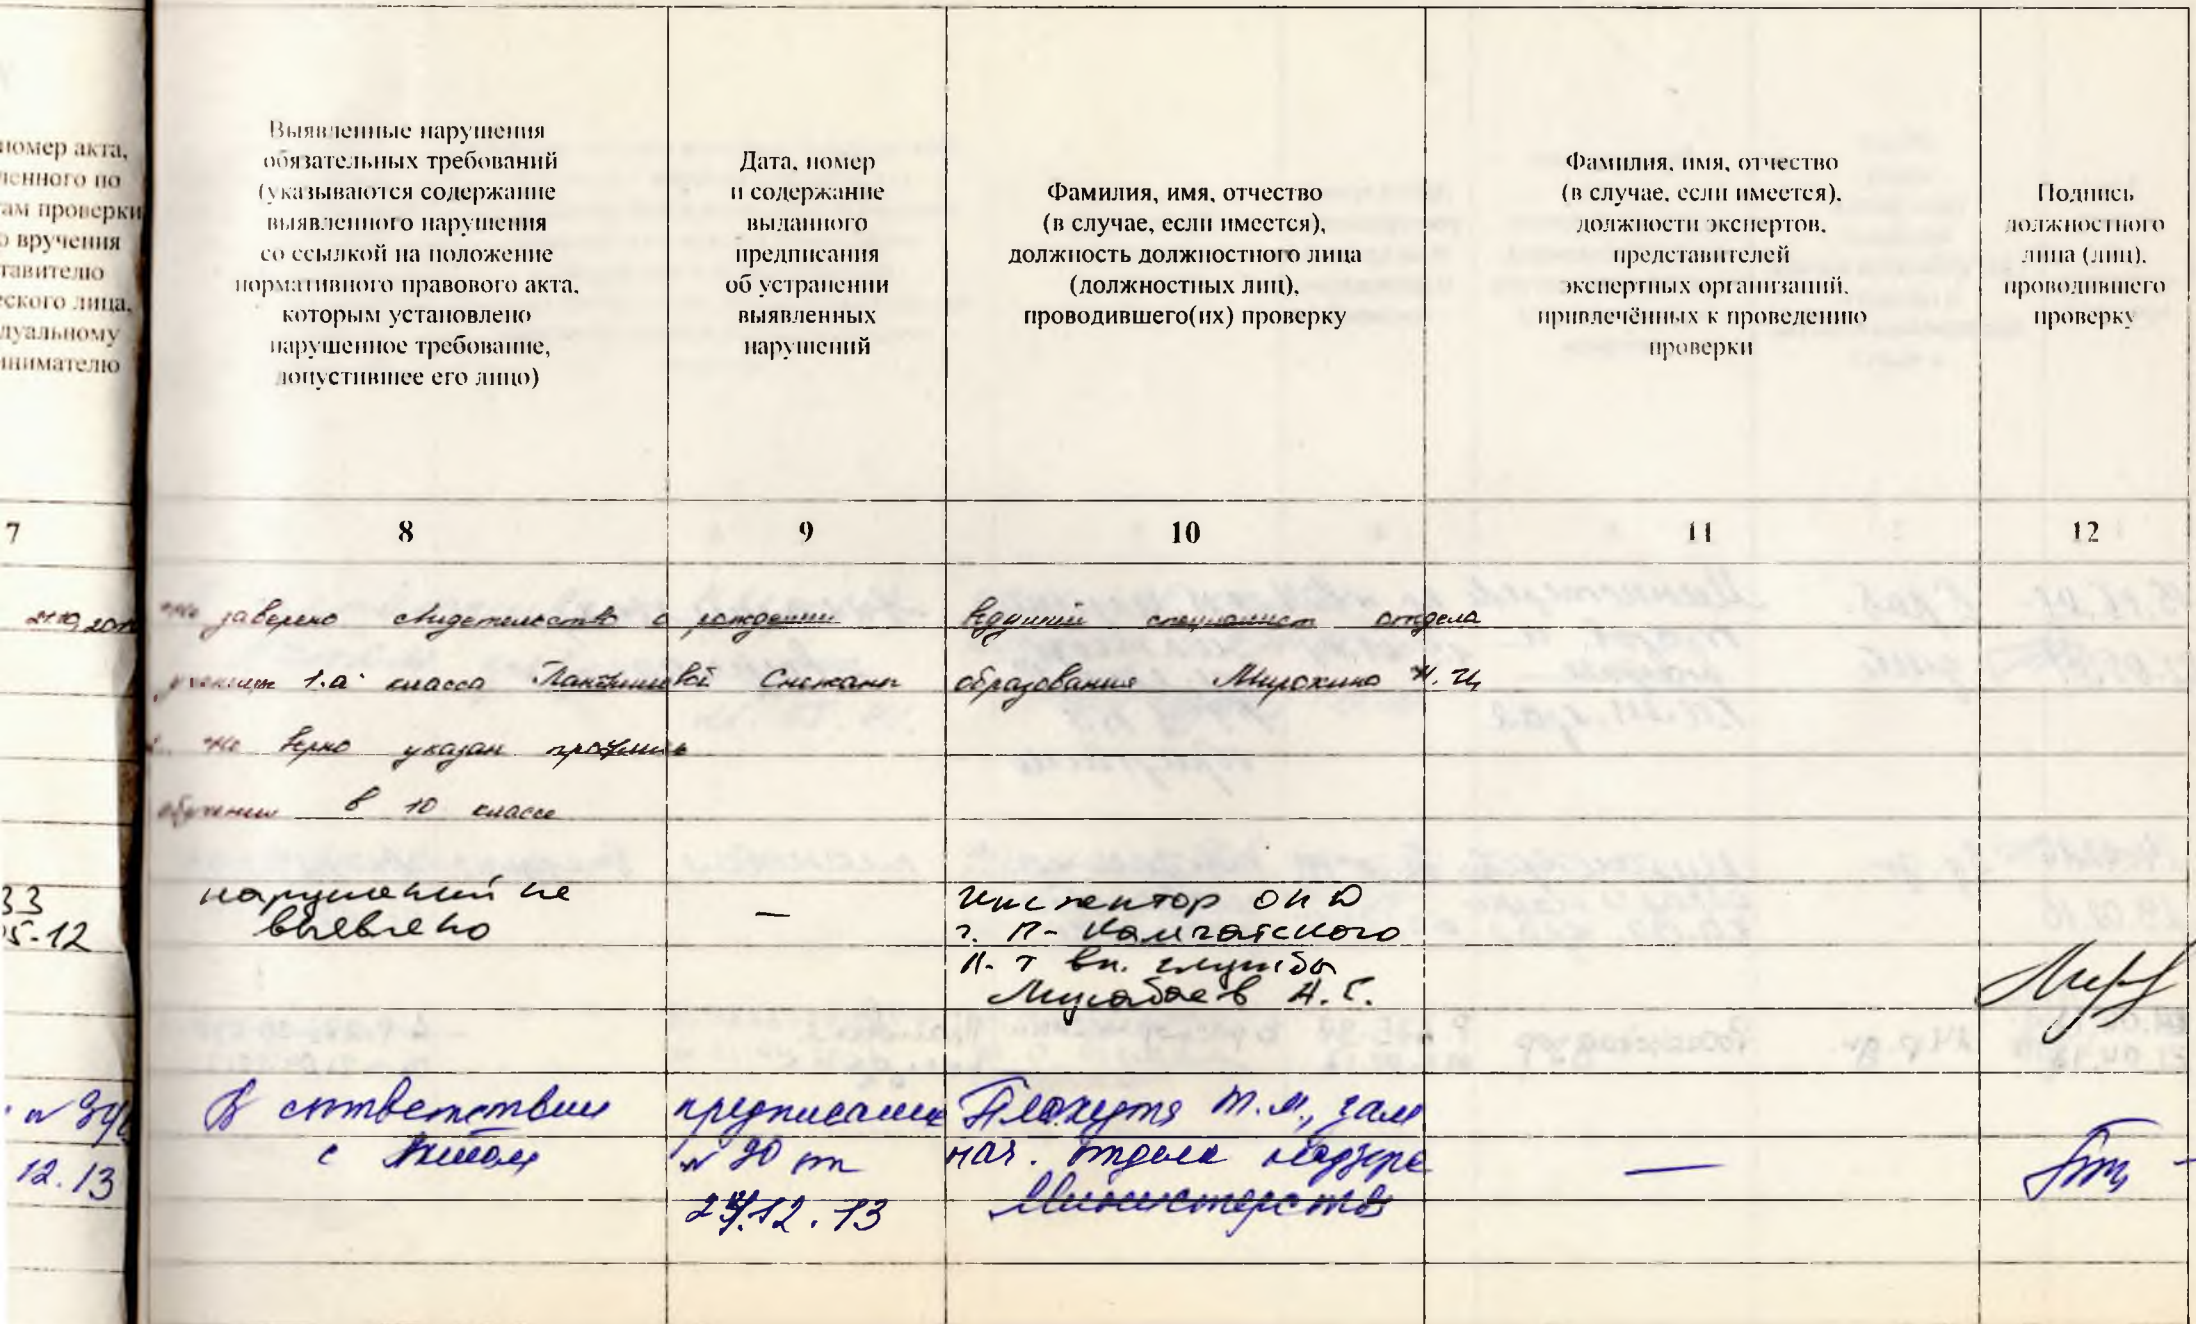 номер акта,
ленного по
ам проверки
о вручения
тавителю
еского лица,
дуальному
инимателю
Выявленные нарушения
обязательных требований
(указываются содержание
выявленного нарушения
со ссылкой на положение
нормативного правового акта,
которым установлено
нарушенное требование,
допустившее его лицо)
Дата, номер
и содержание
выданного
предписания
об устранении
выявленных
нарушений
Фамилия, имя, отчество
(в случае, если имеется),
должность должностного лица
(должностных лиц),
проводившего(их) проверку
Фамилия, имя, отчество
(в случае, если имеется),
должности экспертов,
представителей
экспертных организаций,
привлечённых к проведению
проверки
Подпись
должностного
лица (лиц),
проводившего
проверку
7 8 9 10 11 12
не заверено свидетельство о рождении
1.а класса Снежаны
не верно указан профиль
обучения в 10 классе
ведущий специалист отдела
образования Мирохина
33
05-12
нарушений не
выевлено
—
Инспектор ОНД
г. П-Камчатского
л-т вн. службы
Мусабаев А.С.
12.13
В соответствии
с Актом
предписание
№ 90 от
12.13
Плахутя Т.М., зам
нач. отдела надзора
Министерства
—